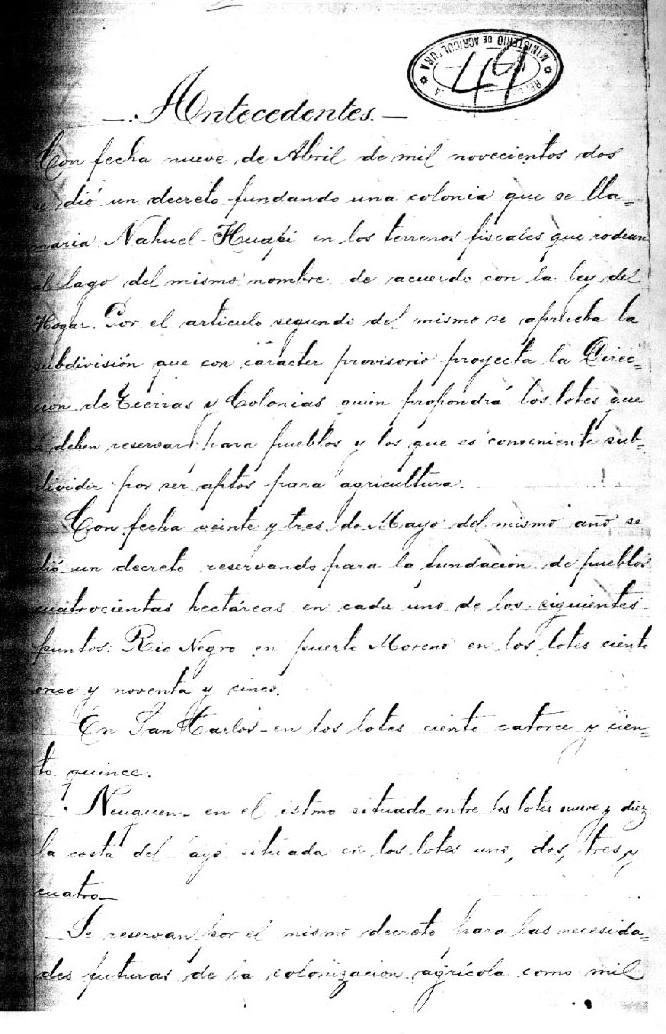 MINISTERIO DE AGRICULTURA
49
Antecedentes.
Con fecha nueve de Abril de mil novecientos dos
se dió un decreto fundando una colonia que se lla-
maria Nahuel-Huapi en los terrenos fiscales que rodean
al lago del mismo nombre de acuerdo con la ley del
Hogar. Por el articulo segundo del mismo se aprueba la
subdivisión que con carácter provisorio proyecta la Direc-
cion de Tierras y Colonias quien propondrá los lotes que
deben reservarse para pueblos y los que es conveniente sub-
dividir por ser aptos para agricultura.
Con fecha veinte y tres de Mayo del mismo año se
dió un decreto reservando para la fundacion de pueblos
cuatrocientas hectáreas en cada uno de los siguientes
puntos: Rio Negro en puerto Moreno en los lotes ciento
once y noventa y cinco.
En San Carlos en los lotes ciento catorce y cien-
to quince.
Neuquen en el istmo situado entre los lotes nueve y diez
la costa del lago situada en los lotes uno, dos, tres y
cuatro
Se reservan por el mismo decreto para las necesida-
des futuras de la colonizacion agrícola como mil